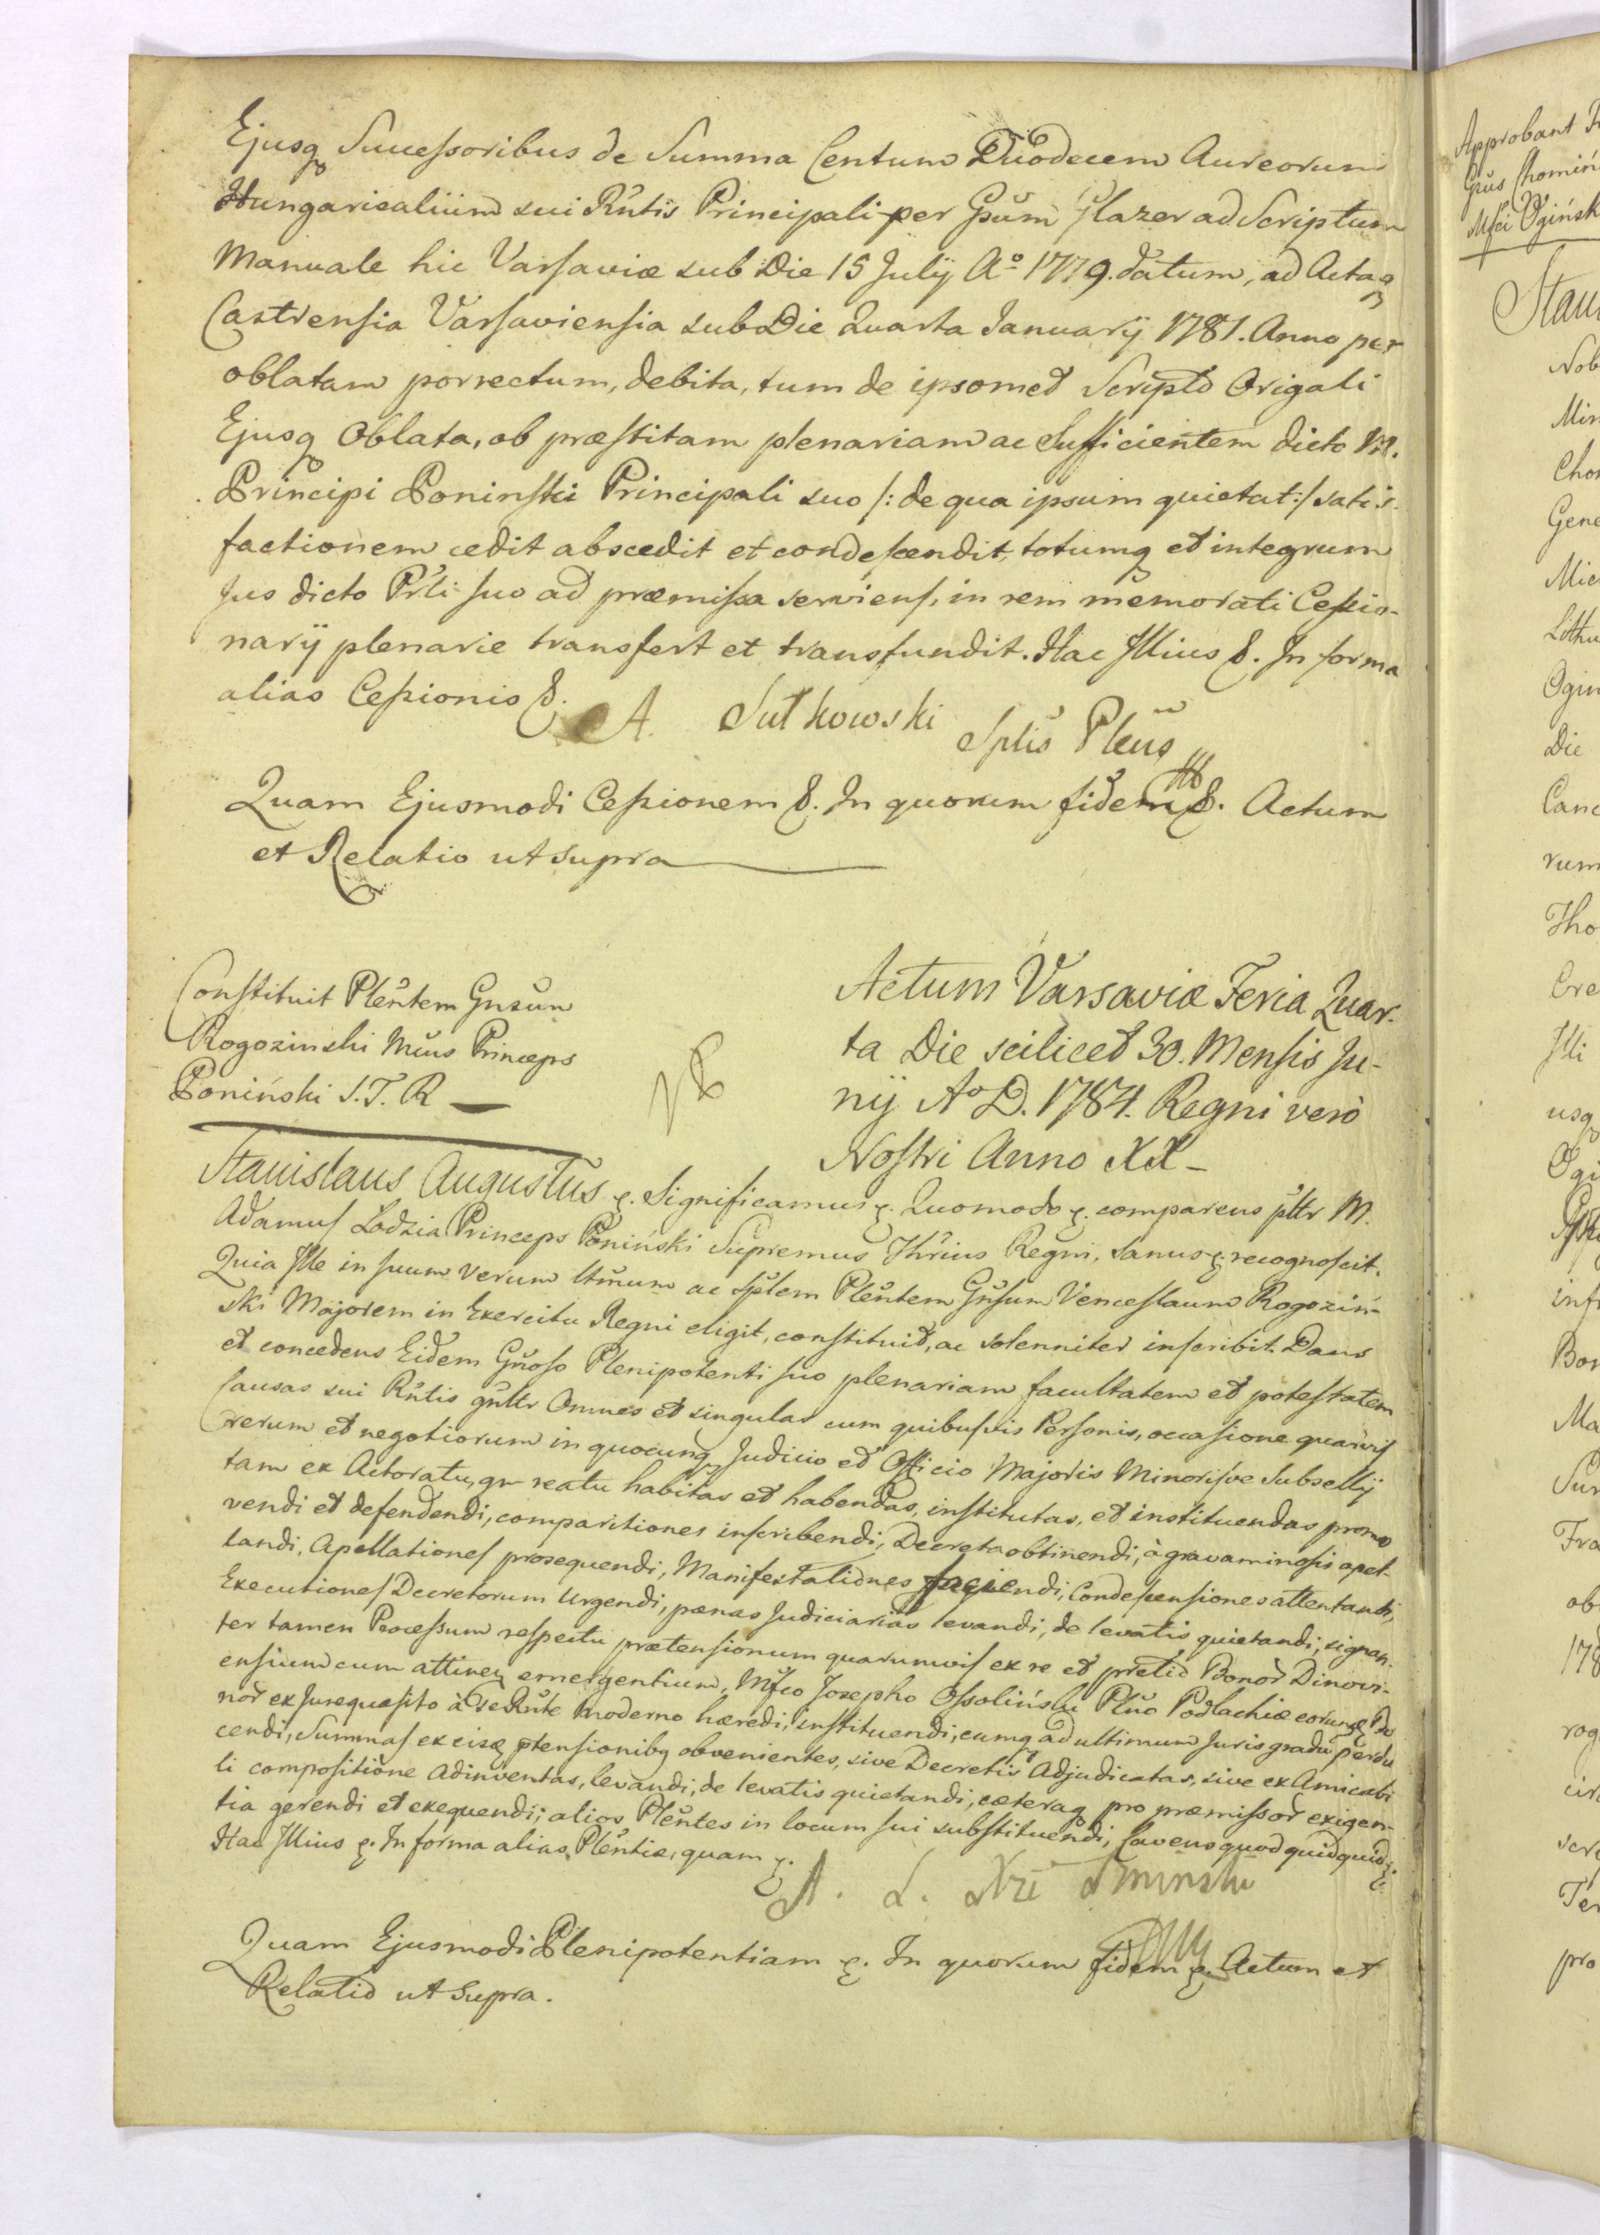 Ejusq Successoribus de Summa Centum Duodecem Aureorum
Hungaricalium sui Rñtis Principali per Gsum Glazer ad Scriptum
Manuale hic Varsaviæ sub Die 15 Julij Aº 1779. datum, ad Actaq
Castrensia Varsaviensia sub Die Quarta Januarij 1781. Anno per
oblatam porrectum, debita, tum de ipsomet Scripto Origali
Ejusq Oblata, ob præstitam plenariam ac Sufficientem dicto
Principi Poninski Principali suo /: de qua ipsum quietat :/ satis-
factionem cedit abscedit et condescendit, totumq et integrum
Jus dicto Prli suo ad præmissa serviens, in rem memorati Cessio-
narij plenarie transfert et transfundit. Hac Illius &. In forma
alias Cessionis &.
A. Sułkowski
Splis Plens
Quam Ejusmodi Cessionem &. In quorum fidem &. Actum
et Relatio ut supra
Constituit Plentem Gnsum
Rogozinski Mcus Princeps
Poniński S.T.R
Actum Varsaviæ Feria Quar-
ta Die scilicet 30. Mensis Ju-
nij Aº D. 1784. Regni verò
Nostri Anno XX
Stanislaus Augustus &. Significamus &. Quomodo &. comparens pltr M.
Adamus Łodzia Princeps Poniński Supremus Thrius Regni, sanus & recognoscit.
Quia Ille in suum verum ltmum ac splem Plentem Gnsum Venceslaum Rogoziń-
ski Majorem in Exercitu Regni eligit, constituit, ac solenniter inscribit. Dans
et concedens Eidem Gnoso Plenipotenti suo plenariam facultatem et potestatem
Causas sui Rñtis gnltr Omnes et singulas cum quibusvis Personis, occasione quarvis
rerum et negotiorum in quocunq Judicio et Officio Majoris Minorisve Subsellij
tam ex Actoratu, qm reatu habitas et habendas, institutas, et instituendas promo
vendi et defendendi, comparitiones inscribendi, Decreta obtinendi, à gravaminosis apel-
landi, Apellationes prosequendi, Manifestationes faciendi, Condescensiones attentandi,
Executiones Decretorum urgendi, pœnas Judiciarias levandi, de levatis quietandi, signan-
ter tamen Processum respectu prætensionum quarumvis ex re et pretio Bonor Dinovi-
ensium cum attinen emergentium, Mfco Josepho Ossoliński Pltno Podlachiæ eorunq Bo
nor ex Jurequæsito à se Rnte moderno hæredi, instituendi, eumq ad ultimum Juris gradu perdu
cendi, Summas ex eisq ptensionibq obvenientes, sive Decretis Adjudicatas, sive ex Amicabi
li compositione Adinventas, levandi, de levatis quietandi, cæteraq pro præmissor exigen-
tia gerendi et exequendi; alios Plentes in locum sui substituendi, Cavens quod quidquid &.
Hac Illius &. In forma alias Plentiæ, quam &.
A. Ł.
Quam Ejusmodi Plenipotentiam &. In quorum fidem &. Actum et
Relatio ut supra.
Approbant
Gsus Chomiń
Mfci Ogińsk
Stani
Nob
Min
Chom
Gene
Mich
Lithu
Ogin
Die
Canc
rum
Tho
Cre
Illi
usq
Ogi
infr
Bon
Ma
Sum
Fra
ob
178
rog
circ
scri
Ter
pro